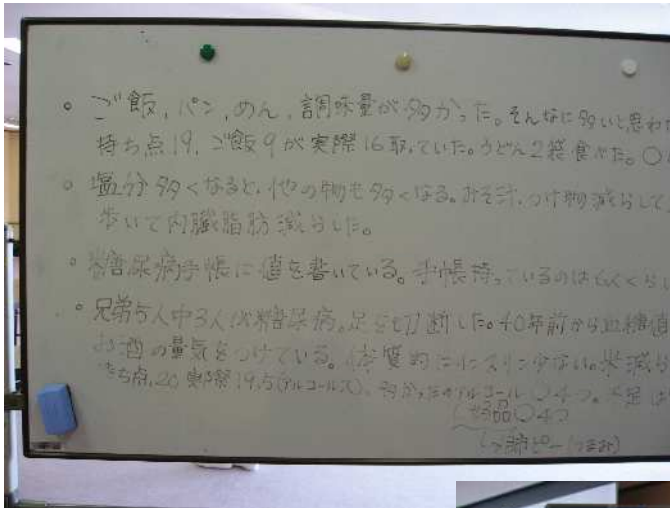 。ご飯、パン、めん、調味量が多かった。そんなに多いと思わ
持ち点19、ご飯9が実際16取っていた。うどん2袋食べた。〇
。塩分多くなると、他の物も多くなる。みそ汁、つけ物減らして
歩いて内臓脂肪減らした。
。糖尿病手帳に値を書いている。手帳持っているのは6人くらい
。兄弟5人中3人は糖尿病。足を切断した。40年前から血糖値
お酒の量気をつけている。体質的にインスリン少ない。減ら
持ち点20 実際19.5(アルコール入)、多かったのアルコール〇4つ。不足は
し好品〇4つ
(つまみ)